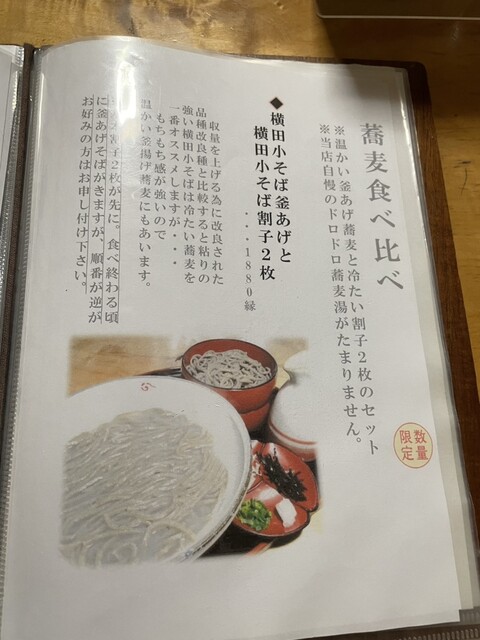 蕎麦食べ比べ
※温かい釜あげ蕎麦と冷たい割子2枚のセット
※当店自慢のドロドロ蕎麦湯がたまりません。
数量
限定
◆横田小そば釜あげと
横田小そば割子2枚
・・・1880縁
収量を上げる為に改良された
品種改良種と比較すると粘りの
強い横田小そばは冷たい蕎麦を
一番オススメしますが・・・
もちもち感が強いので
温かい釜揚げ蕎麦にもあいます。
割子2枚が先に。食べ終わる頃
に釜あげそばがきますが、順番が逆が
お好みの方はお申し付け下さい。